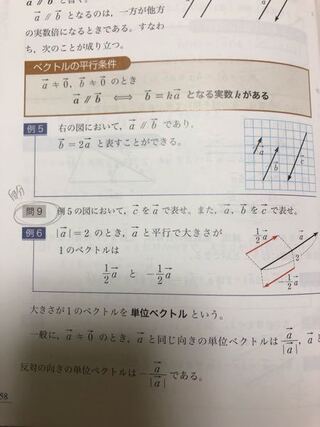 $\vec{a} /\!/ \vec{b}$ と書く。
$\vec{a} /\!/ \vec{b}$ となるのは，一方が他方
の実数倍になるときである。すなわ
ち，次のことが成り立つ。
ベクトルの平行条件
$\vec{a} \neq \vec{0}$，$\vec{b} \neq \vec{0}$ のとき
$\vec{a} /\!/ \vec{b}$ ⟺ $\vec{b} = k\vec{a}$ となる実数 $k$ がある
例5 右の図において，$\vec{a} /\!/ \vec{b}$ であり，
$\vec{b} = 2\vec{a}$ と表すことができる。
$\vec{a}$ $\vec{b}$ $\vec{c}$
問9 例5の図において，$\vec{c}$ を $\vec{a}$ で表せ。また，$\vec{a}$，$\vec{b}$ を $\vec{c}$ で表せ。
例6 $|\vec{a}| = 2$ のとき，$\vec{a}$ と平行で大きさが
1のベクトルは
$\frac{1}{2}\vec{a}$ と $-\frac{1}{2}\vec{a}$
$\frac{1}{2}\vec{a}$ $\vec{a}$ 2 $-\frac{1}{2}\vec{a}$
大きさが1のベクトルを 単位ベクトル という。
一般に，$\vec{a} \neq \vec{0}$ のとき，$\vec{a}$ と同じ向きの単位ベクトルは $\frac{\vec{a}}{|\vec{a}|}$，$\vec{a}$ と
反対の向きの単位ベクトルは $-\frac{\vec{a}}{|\vec{a}|}$ である。
58